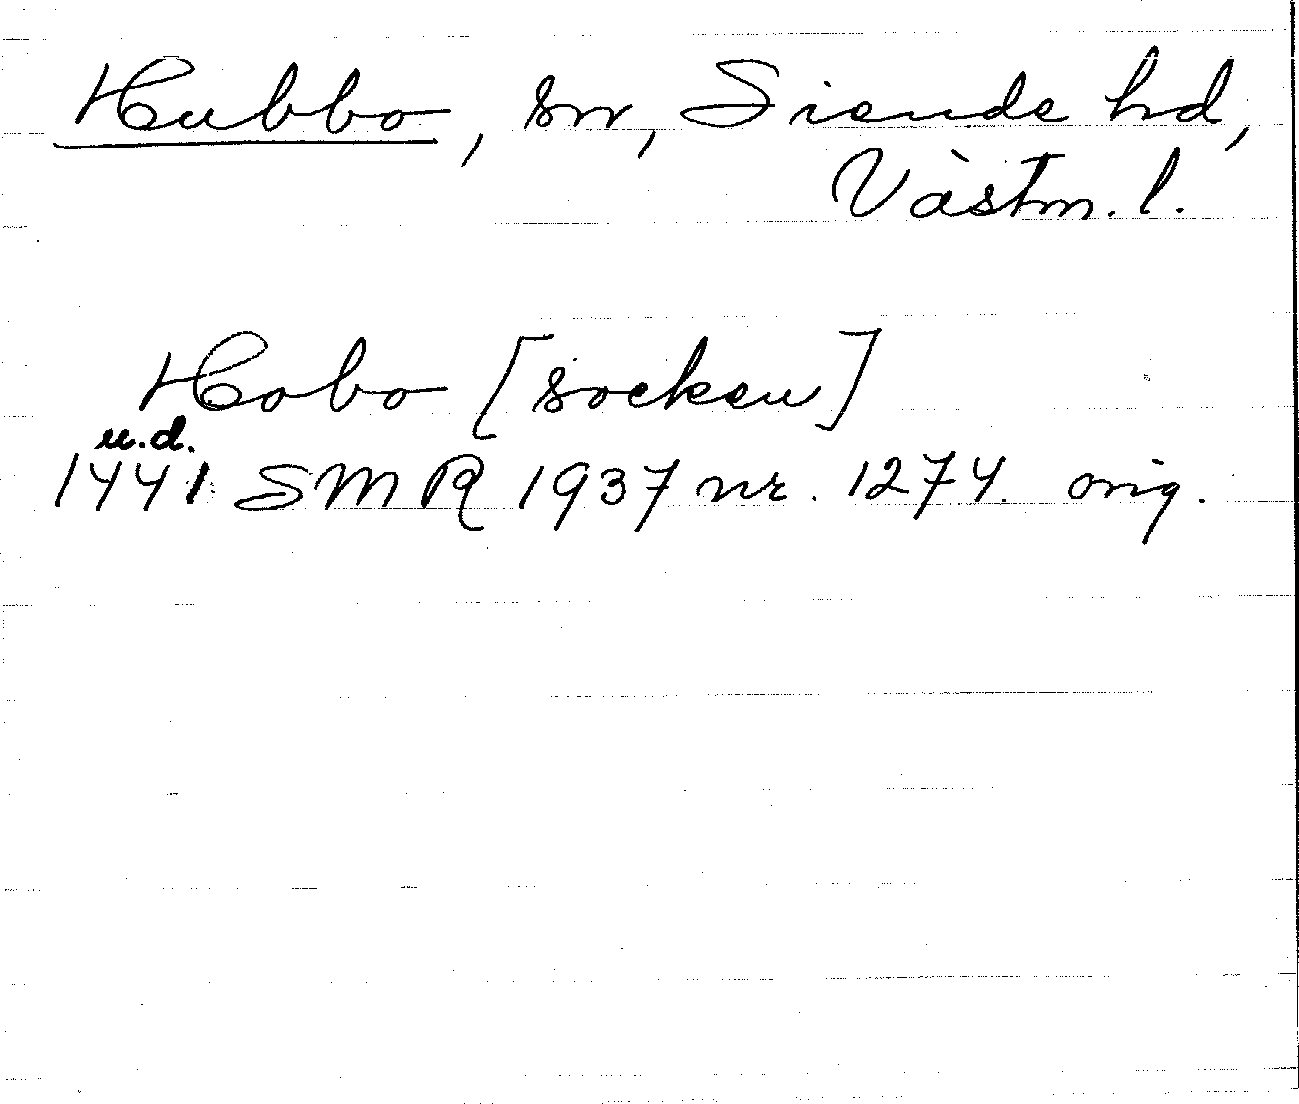 Hubbo, sn, Siende hd,
Västm. l.
Hobo [socken]
u.d.
1441 SMR 1937 nr. 1274. orig.